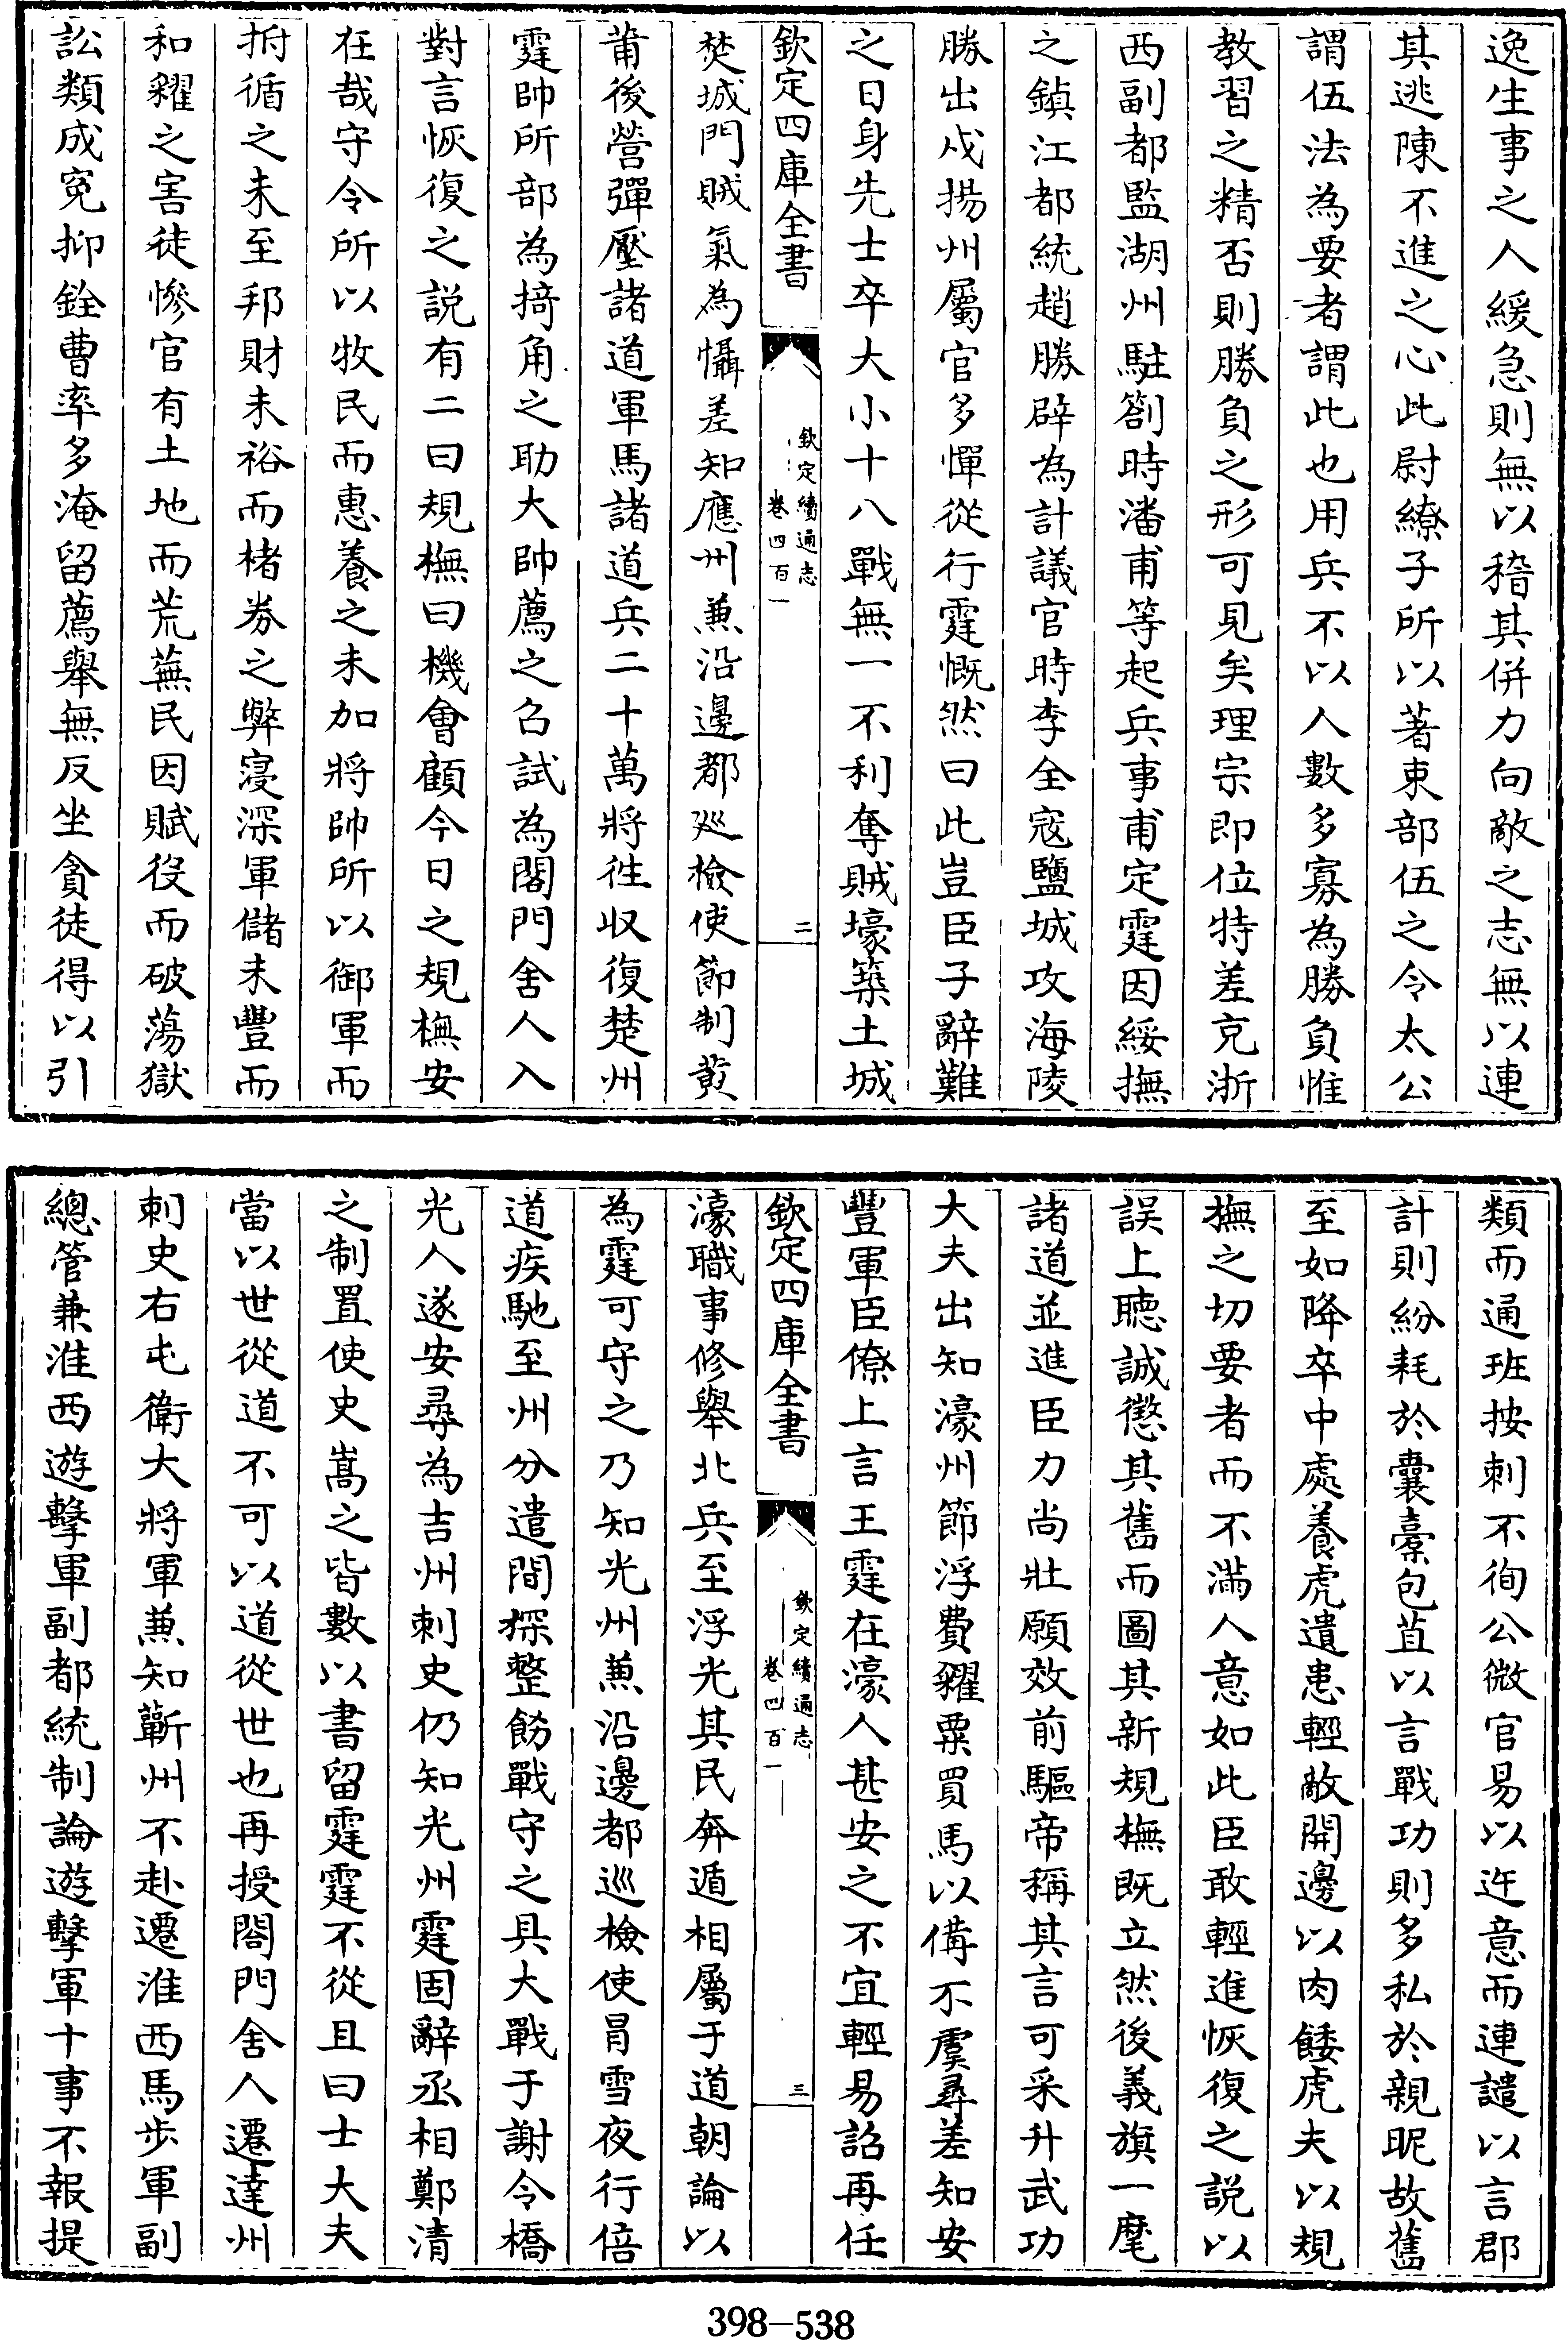 逸生事之人緩急則無以稽其併力向敵之志無以連
其逃陳不進之心此尉繚子所以著束部伍之令太公
謂伍法為要者謂此也用兵不以人數多寡為勝負惟
教習之精否則勝負之形可見矣理宗即位特差克浙
西副都監湖州駐劄時潘甫等起兵事甫定霆因綏撫
之鎮江都統趙勝辟為計議官時李全寇鹽城攻海陵
勝出戍揚州屬官多憚從行霆慨然曰此豈臣子辭難
之日身先士卒大小十八戰無一不利奪賊壕築土城
欽定四庫全書
欽定續通志
卷四百一
二
焚城門賊氣為懾差知應州兼沿邊都廵檢使節制黃
莆後營彈壓諸道軍馬諸道兵二十萬將徃収復楚州
霆帥所部為掎角之助大帥薦之召試為閤門舍人入
對言恢復之説有二曰規橅曰機會顧今日之規橅安
在哉守令所以牧民而惠養之未加將帥所以御軍而
拊循之未至邦財未裕而楮券之弊寖深軍儲未豐而
和糴之害徒慘官有土地而荒蕪民因賦役而破蕩獄
訟類成寃抑銓曹率多淹留薦舉無反坐貪徒得以引
類而通班按刺不徇公微官易以迕意而連譴以言郡
計則紛耗於囊橐包苴以言戰功則多私於親昵故舊
至如降卒中處養虎遺患輕敵開邊以肉餧虎夫以規
撫之切要者而不滿人意如此臣敢輕進恢復之説以
誤上聽誠懲其舊而圖其新規橅既立然後義旗一麾
諸道並進臣力尚壯願效前驅帝稱其言可采升武功
大夫出知濠州節浮費糴粟買馬以備不虞尋差知安
豐軍臣僚上言王霆在濠人甚安之不宜輕易詔再任
欽定四庫全書
欽定續通志
卷四百一
三
濠職事修舉北兵至浮光其民奔遁相屬于道朝論以
為霆可守之乃知光州兼沿邊都巡檢使冒雪夜行倍
道疾馳至州分遣間探整飭戰守之具大戰于謝令橋
光人遂安尋為吉州刺史仍知光州霆固辭丞相鄭清
之制置使史嵩之皆數以書留霆霆不從且曰士大夫
當以世從道不可以道從世也再授閤門舍人遷達州
刺史右屯衛大將軍兼知蘄州不赴遷淮西馬步軍副
總管兼淮西遊擊軍副都統制論遊擊軍十事不報提
398—538